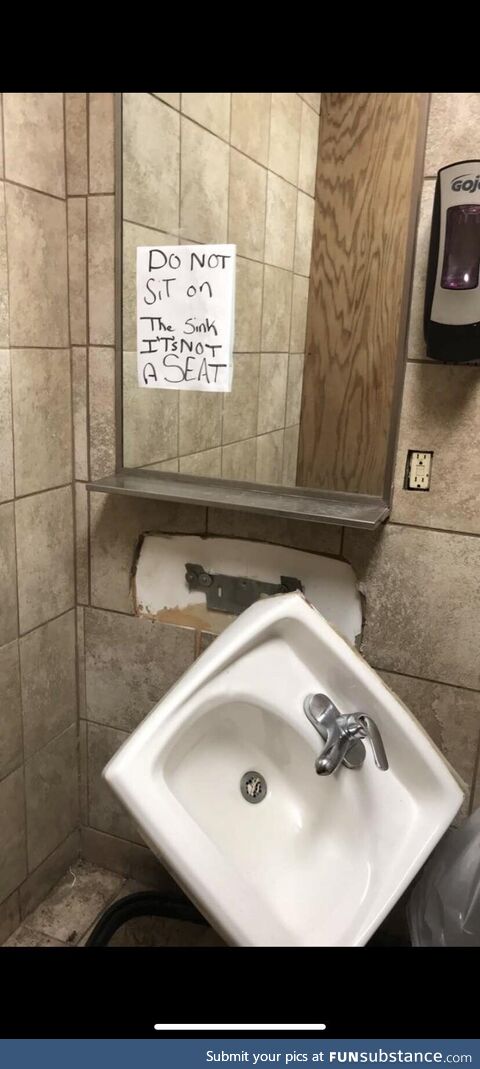 GOJO
DO NOT
SiT on
The Sink
IT'S NOT
A SEAT
Submit your pics at FUNsubstance.com